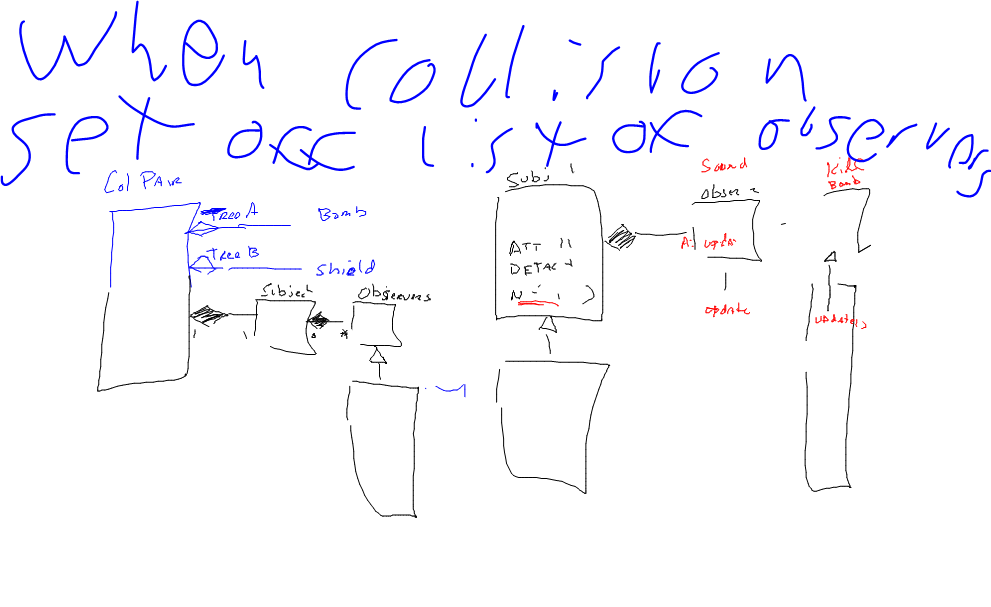 When collision
set off list of observers
Col PAIR
Tree A
Bomb
Tree B
Shield
Subject
Observers
1
1
*
ATT
DETACH
Sound
update
update
Kill
Bomb
update()